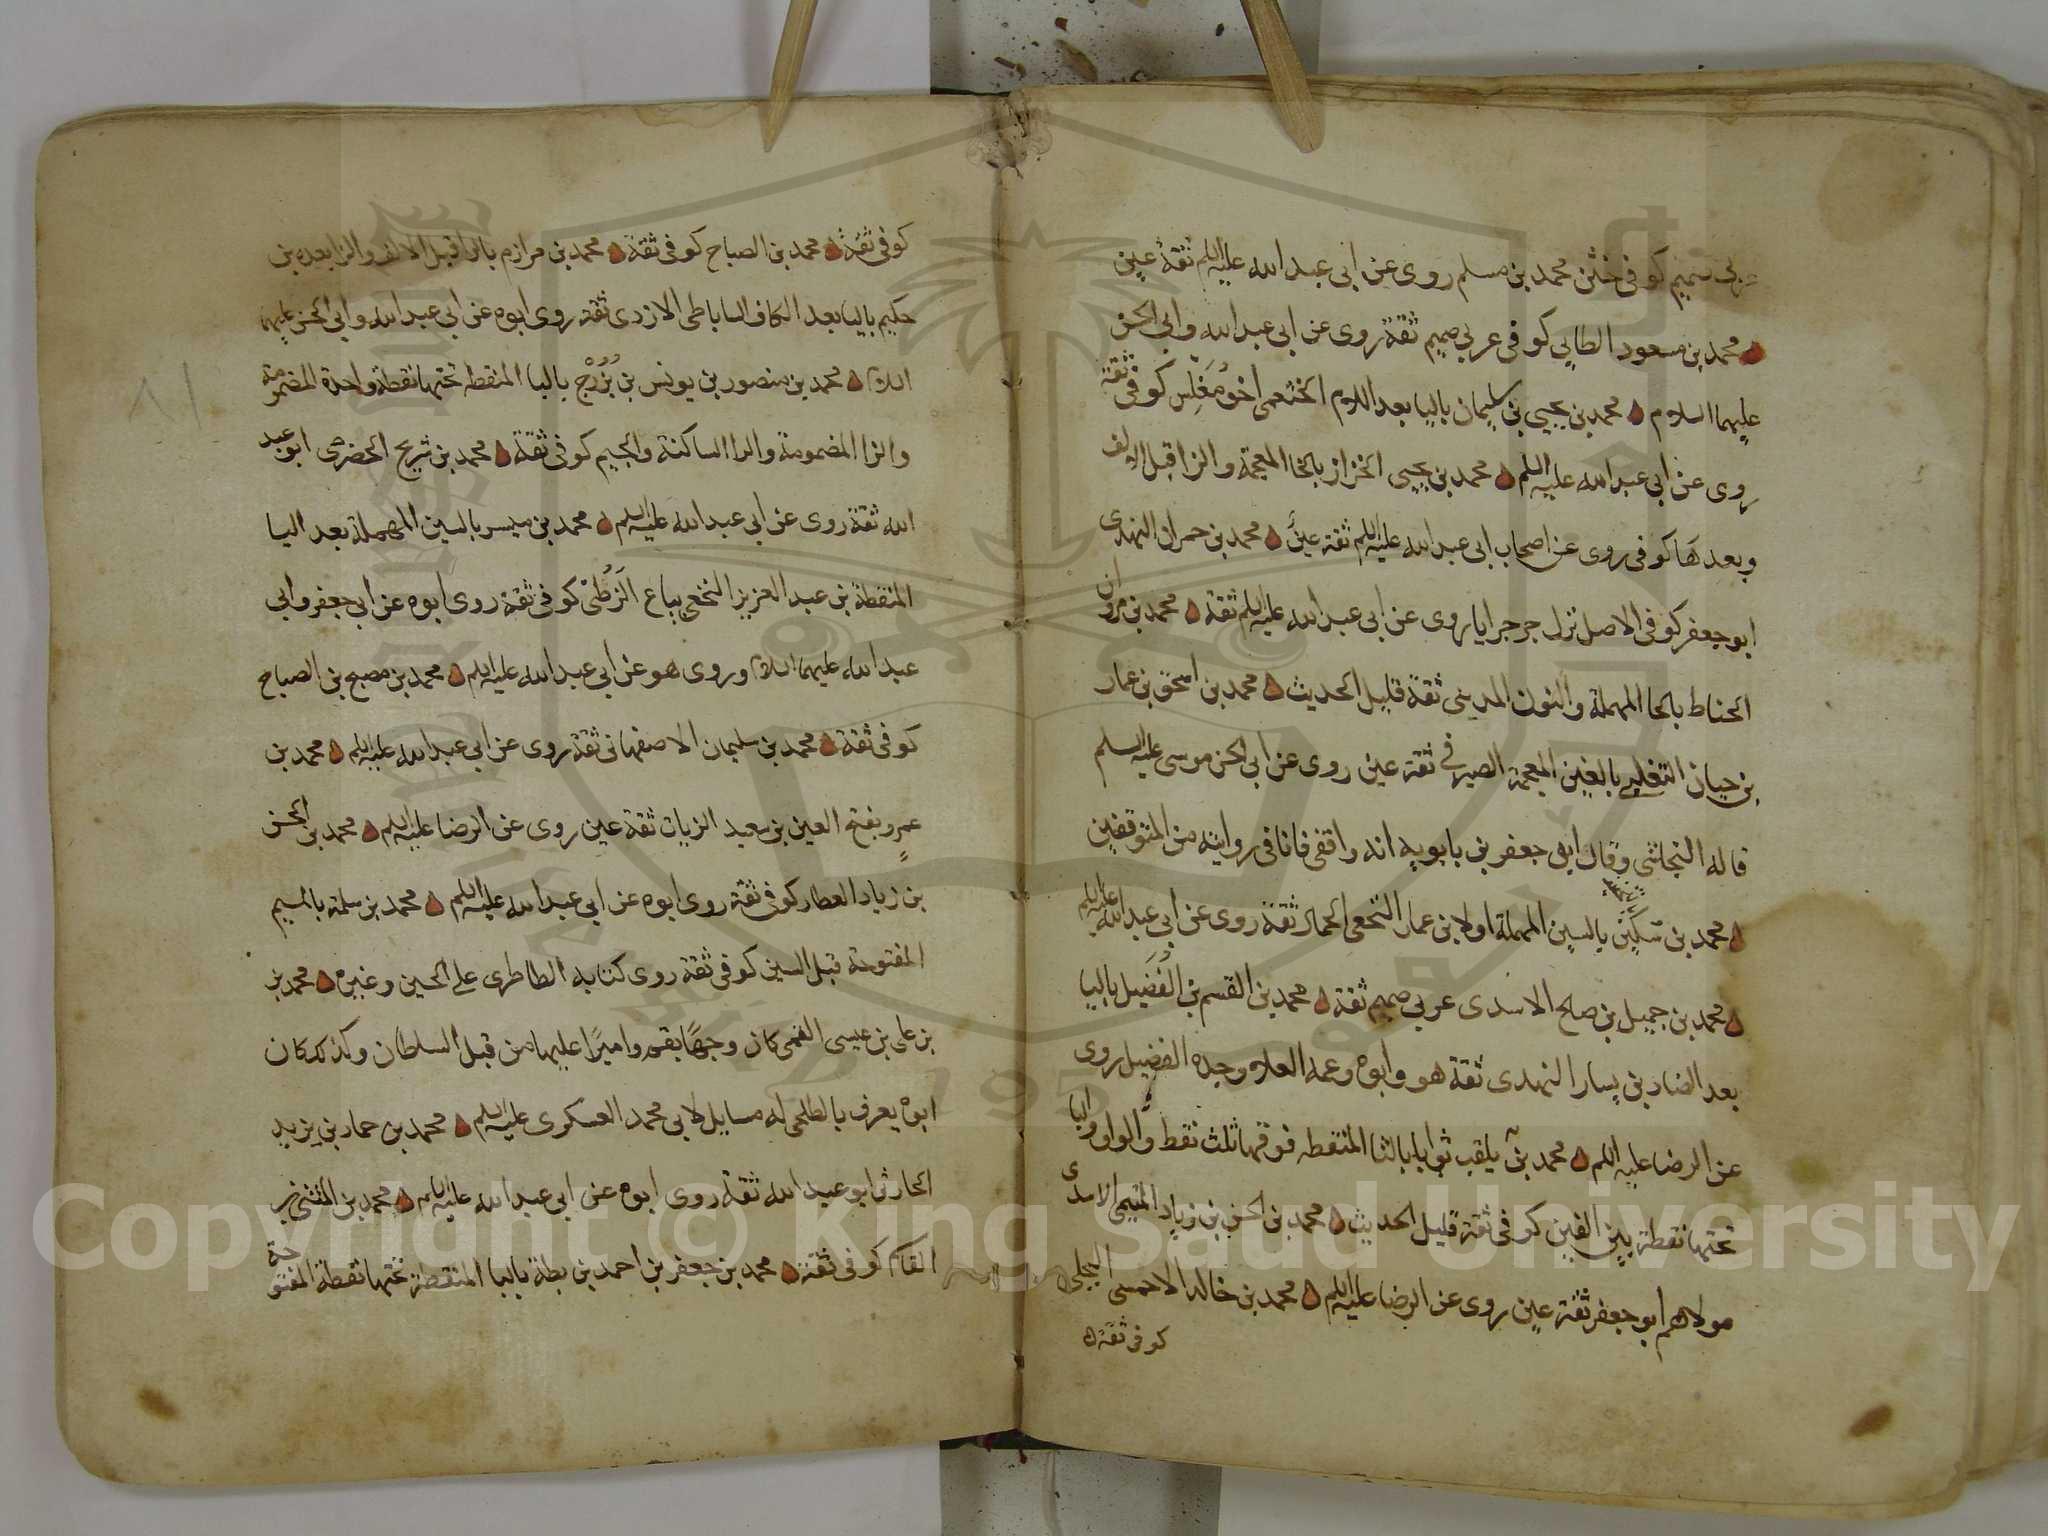 عربي صميم كوفي ختن محمد بن مسلم روى عن ابي عبد الله عليه السلم ثقة عين
محمد بن مسعود الطايي كوفي عربي صميم ثقة روى عن ابي عبد الله وابي الحسن
عليهما السلام محمد بن يحيى بن سليمان باليا بعد اللام الخثعمي اخو مغلس كوفي ثقة
روى عن ابي عبد الله عليه السلم محمد بن يحيى الخزاز بالخا المعجمة والزا قبل الالف
وبعدها كوفي روى عن اصحاب ابي عبد الله عليه السلم ثقة عين محمد بن حمران النهدي
ابو جعفر كوفي الاصل نزل جرجرايا روى عن ابي عبد الله عليه السلم ثقة محمد بن مروان
الحناط بالحا المهملة والنون المديني ثقة قليل الحديث محمد بن اسحق بن عمار
بن حيان التغلبي بالغين المعجمة الصيرفي ثقة عين روى عن ابي الحسن موسى عليه السلم
قاله النجاشي وقال ابو جعفر بن بابويه انه واقفي فانا في روايته من المتوقفين
محمد بن سكين بالسين المهملة اولا بن عمار النخعي الجمال ثقة روى عن ابي عبد الله عليه السلم
محمد بن جميل بن صالح الاسدي عربي صميم ثقة محمد بن القسم بن الفضيل باليا
بعد الضاد بن يسار النهدي ثقة هو وابوه وعمه العلا وجده الفضيل روى
عن الرضا عليه السلم محمد بن يلقب ثوابا بالثا المنقطه فوقها ثلث نقط والواو والبا
تحتها نقطة بين الفين كوفي ثقة قليل الحديث محمد بن الحسن بن زياد الميثمي الاسدي
مولاهم ابو جعفر ثقة عين روى عن الرضا عليه السلم محمد بن خالد الاحمسي البجلي
كوفي ثقة
كوفي ثقة محمد بن الصباح كوفي ثقة محمد بن مرازم بالرا قبل الالف والزا بعده بن
حكيم باليا بعد الكاف الساباطي الازدي ثقة روى ابوه عن ابي عبد الله وابي الحسن عليهما
السلام محمد بن منصور بن يونس بن بزرج بالبا المنقطه تحتها نقطة واحدة المضمومة
والزا المضمومة والرا الساكنة والجيم كوفي ثقة محمد بن شريح الحضرمي ابو عبد
الله ثقة روى عن ابي عبد الله عليه السلم محمد بن ميسر بالسين المهملة بعد اليا
المنقطة بن عبد العزيز النخعي بياع الزطي كوفي ثقة روى ابوه عن ابي جعفر وابي
عبد الله عليهما السلام وروى هو عن ابي عبد الله عليه السلم محمد بن مصبح بن الصباح
كوفي ثقة محمد بن سليمان الاصفهاني ثقة روى عن ابي عبد الله عليه السلم محمد بن
عمرو بفتح العين بن سعيد الزيات ثقة عين روى عن الرضا عليه السلم محمد بن الحسن
بن زياد العطار كوفي ثقة روى ابوه عن ابي عبد الله عليه السلم محمد بن سلمة بالميم
المفتوحة قبل السين كوفي ثقة روى كتابه الطاطري علي الحسين وغيره محمد بن
بن علي بن عيسى القمي كان وجها بقم واميرا عليها من قبل السلطان وكذلك كان
ابوه يعرف بالطلحي له مسايل لابي محمد العسكري عليه السلم محمد بن حماد بن يزيد
الحارثي ابو عبد الله ثقة روى ابوه عن ابي عبد الله عليه السلم محمد بن المثنى بن
القاسم كوفي ثقة محمد بن جعفر بن احمد بن بطة بالبا المنقطة تحتها نقطة المفتوحة
٨١
Copyright © King Saud University